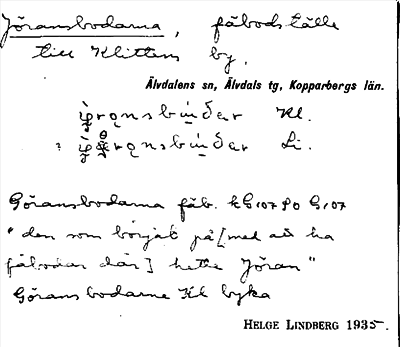 Jöransbodarna, fäbodställe
till Klittens by.
Älvdalens sn, Älvdals tg, Kopparbergs län.
Kl.
Li.
Göransbodarna fäb.
"den som börjat på [med att ha
fäbodar där] hette Jöran"
Göransbodarne Kl byka
HELGE LINDBERG 1935.